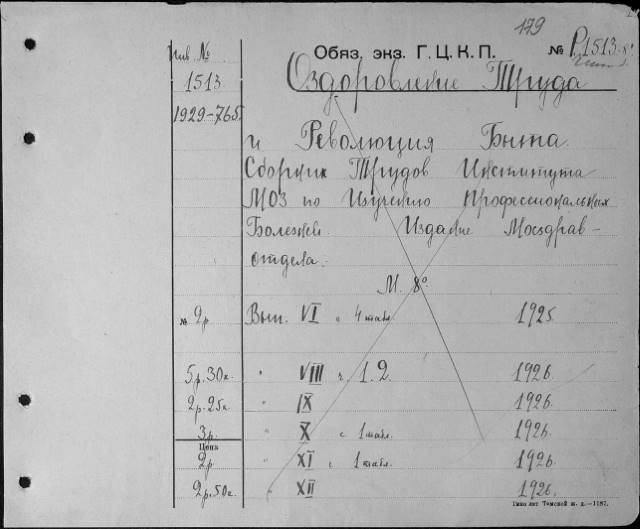 179
Инв. № Обяз. экз. Г.Ц.К.П. № Р1513
1513 Оздоровление Труда
1929-765
и Революция Быта.
Сборник Трудов Института
МОЗ по Изучению Профессиональных
Болезней. Издание Мосздрав-
отдела.
М. 8º
№ 2р Вып. VI с 4 табл. 1925
5р.30к. " VIII ч. 1.2. 1926
2р.25к. " IX 1926
3р. " X с 1 табл. 1926
Цена
2р " XI с 1 табл. 1926
2р.50к. " XII 1926
Типо лит Томской ж. д.—1187.